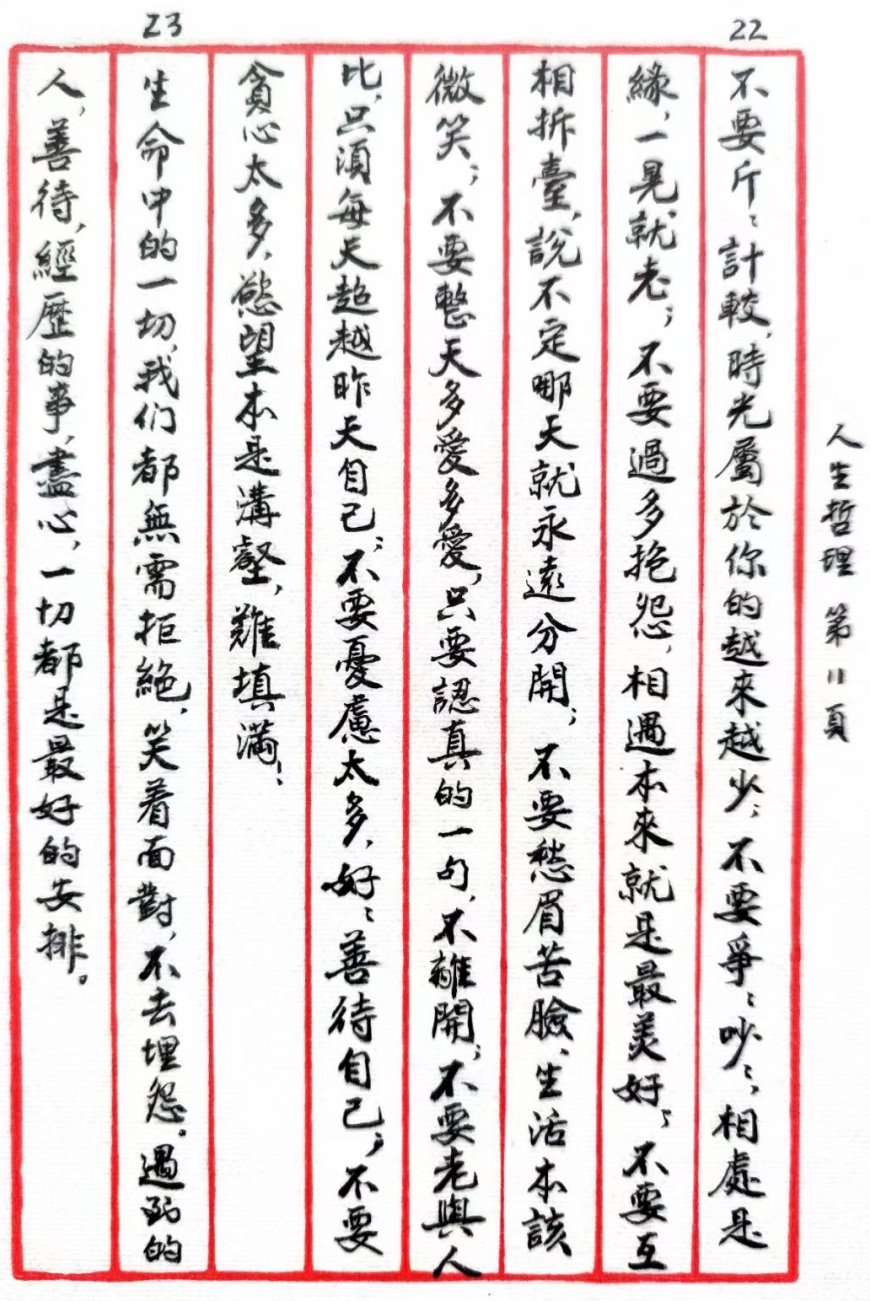 人生哲理 第11頁
22
不要斤〻計較,時光屬於你的越來越少;不要爭〻吵〻,相處是
緣,一晃就老;不要過多抱怨,相遇本來就是最美好;不要互
相拆臺,說不定哪天就永遠分開;不要愁眉苦臉,生活本該
微笑;不要整天多愛多愛,只要認真的一句,不離開;不要老與人
比,只須每天超越昨天自己;不要憂慮太多,好〻善待自己;不要
貪心太多,慾望本是溝壑,難填滿!
23
生命中的一切,我们都無需拒絕,笑着面對,不去埋怨。遇到的
人,善待,經歷的事,盡心,一切都是最好的安排。